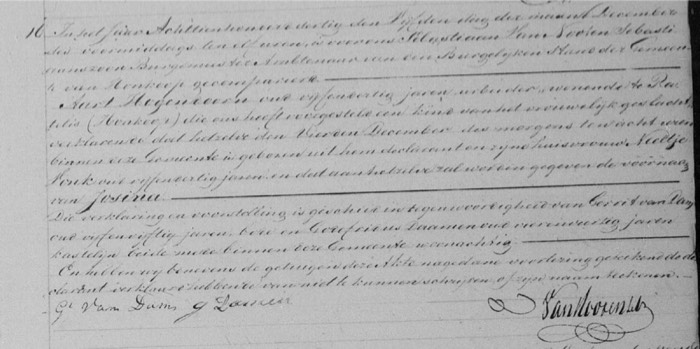 16. In het Jaar Achttienhonderd dertig den Vyfden dag der maand December
des voormiddags ten elf uren, is voor ons Sebastiaan Van Voren Sebasti-
aanszoon Burgemeester Ambtenaar van den Burgelyken Stand der Gemeen-
te van Honkoop gecompareerd
Aart Hogenboom oud vyfendertig jaren arbeider wonende te
(Honkoop) die ons heeft voorgesteld een kind van het vrouwelyk geslacht
verklarende dat hetzelve den Vierden December des morgens ten acht uren
binnen deze Gemeente is geboren uit hem declarant en zyne huisvrouw Neeltje
Vonk oud vyfendertig jaren, en dat aan hetzelve zal worden gegeven de voornaam
van Josina
Die verklaring en voorstelling is geschied in tegenwoordigheid van Gerrit van Dam
oud vyfenvyftig jaren, en Godefridus Daamen oud vierenveertig jaren
kastelyn beide mede binnen deze Gemeente woonachtig
En hebben wy benevens de getuigen deze Akte na gedane voorlezing getekend de de-
clarant verklaarde van niet te kunnen schryven of zyn naam tekenen
G. Van Dam G Damen